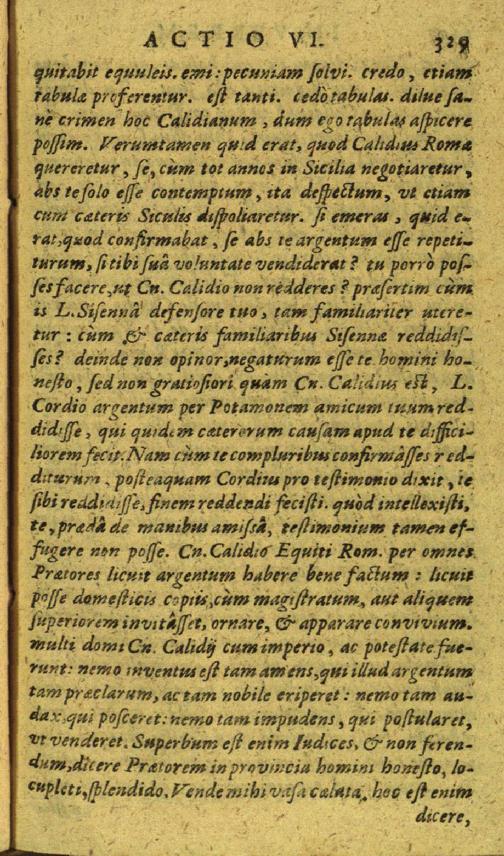 ACTIO VI. 329
quitabit equuleis. emi: pecuniam solvi. credo, etiam
tabulæ proferentur. est tanti. cedò tabulas. dilue sa-
nè crimen hoc Calidianum, dum ego tabulas aspicere
possim. Verumtamen quid erat, quod Calidius Romæ
quereretur, se, cùm tot annos in Sicilia negotiaretur,
abs te solo esse contemptum, ita despectum, vt etiam
cum cæteris Siculis dispoliaretur. si emeras, quid e-
rat, quod confirmabat, se abs te argentum esse repeti-
turum, si tibi suâ voluntate vendiderat? tu porrò pos-
ses facere, ut Cn. Calidio non redderes? præsertim cùm
is L. Sisennâ defensore tuo, tam familiariter utere-
tur: cùm & cæteris familiaribus Sisennæ reddidis-
ses? deinde non opinor, negaturum esse te homini ho-
nesto, sed non gratiosiori quàm Cn. Calidius est, L.
Cordio argentum per Potamonem amicum tuum red-
didisse, qui quidem cæterorum causam apud te diffici-
liorem fecit. Nam cùm te compluribus confirmâsses red-
diturum, posteaquam Cordius pro testimonio dixit, te
sibi reddidisse, finem reddendi fecisti. quòd intellexisti,
te, prædâ de manibus amissâ, testimonium tamen ef-
fugere non posse. Cn. Calidio Equiti Rom. per omnes
Prætores licuit argentum habere bene factum: licuit
posse domesticis copiis, cùm magistratum, aut aliquem
superiorem invitâsset, ornare, & apparare convivium.
multi domi Cn. Calidij cum imperio, ac potestate fue-
runt: nemo inventus est tam amens, qui illud argentum
tam præclarum, ac tam nobile eriperet: nemo tam au-
dax, qui posceret: nemo tam impudens, qui postularet,
vt venderet. Superbum est enim Iudices, & non feren-
dum, dicere Prætorem in provincia homini honesto, lo-
cupleti, splendido, Vende mihi vasa cælata, hoc est enim
dicere,